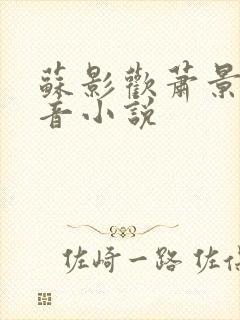 蘇影歡蕭景
音小說
佐崎一路 佐倍